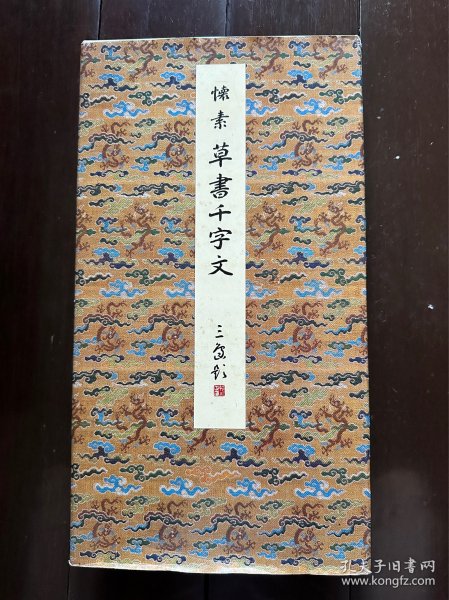 懐素 草書千字文
孔夫子旧书网
www.kongfz.com